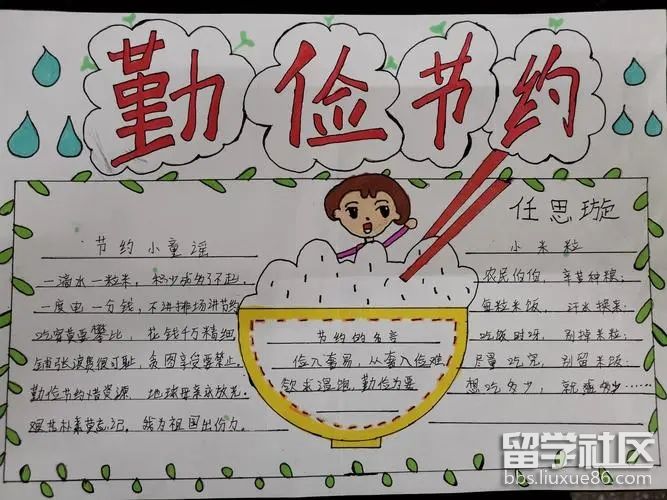 勤俭节约
任思璇
节约小童谣
一滴水一粒米,
一度电一分钱,不讲排场讲节约
攀比,花钱千万精细
铺张浪费很可耻,贪图享受要禁止
勤俭节约惜资源,地球母亲
艰苦朴素莫忘记,我为祖国出份力。
节约的名言
俭入奢易,从奢入俭难
饮求温饱,勤俭为要
小米粒
农民伯伯,辛苦种粮;
每粒米饭,汗水换来;
吃饭时呀,别掉米粒;
尽量吃完,别留米饭;
想吃多少,就盛多少……
留学社区
bbs.liuxue86.com